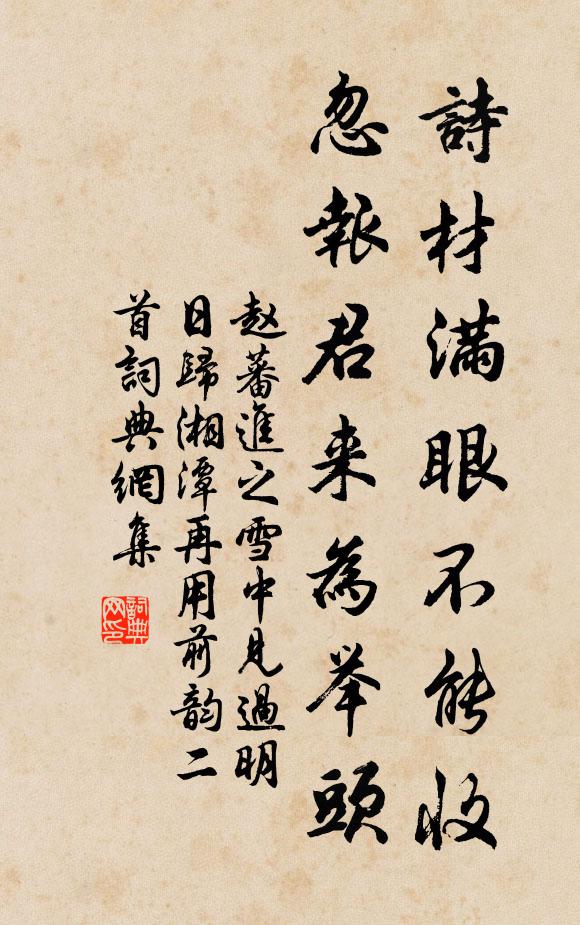 詩材滿眼不能收
忽報君来為举頭
赵蕃進之雪中見過明
日歸湘潭再用前韵二
首詞典網集
詞典
网印